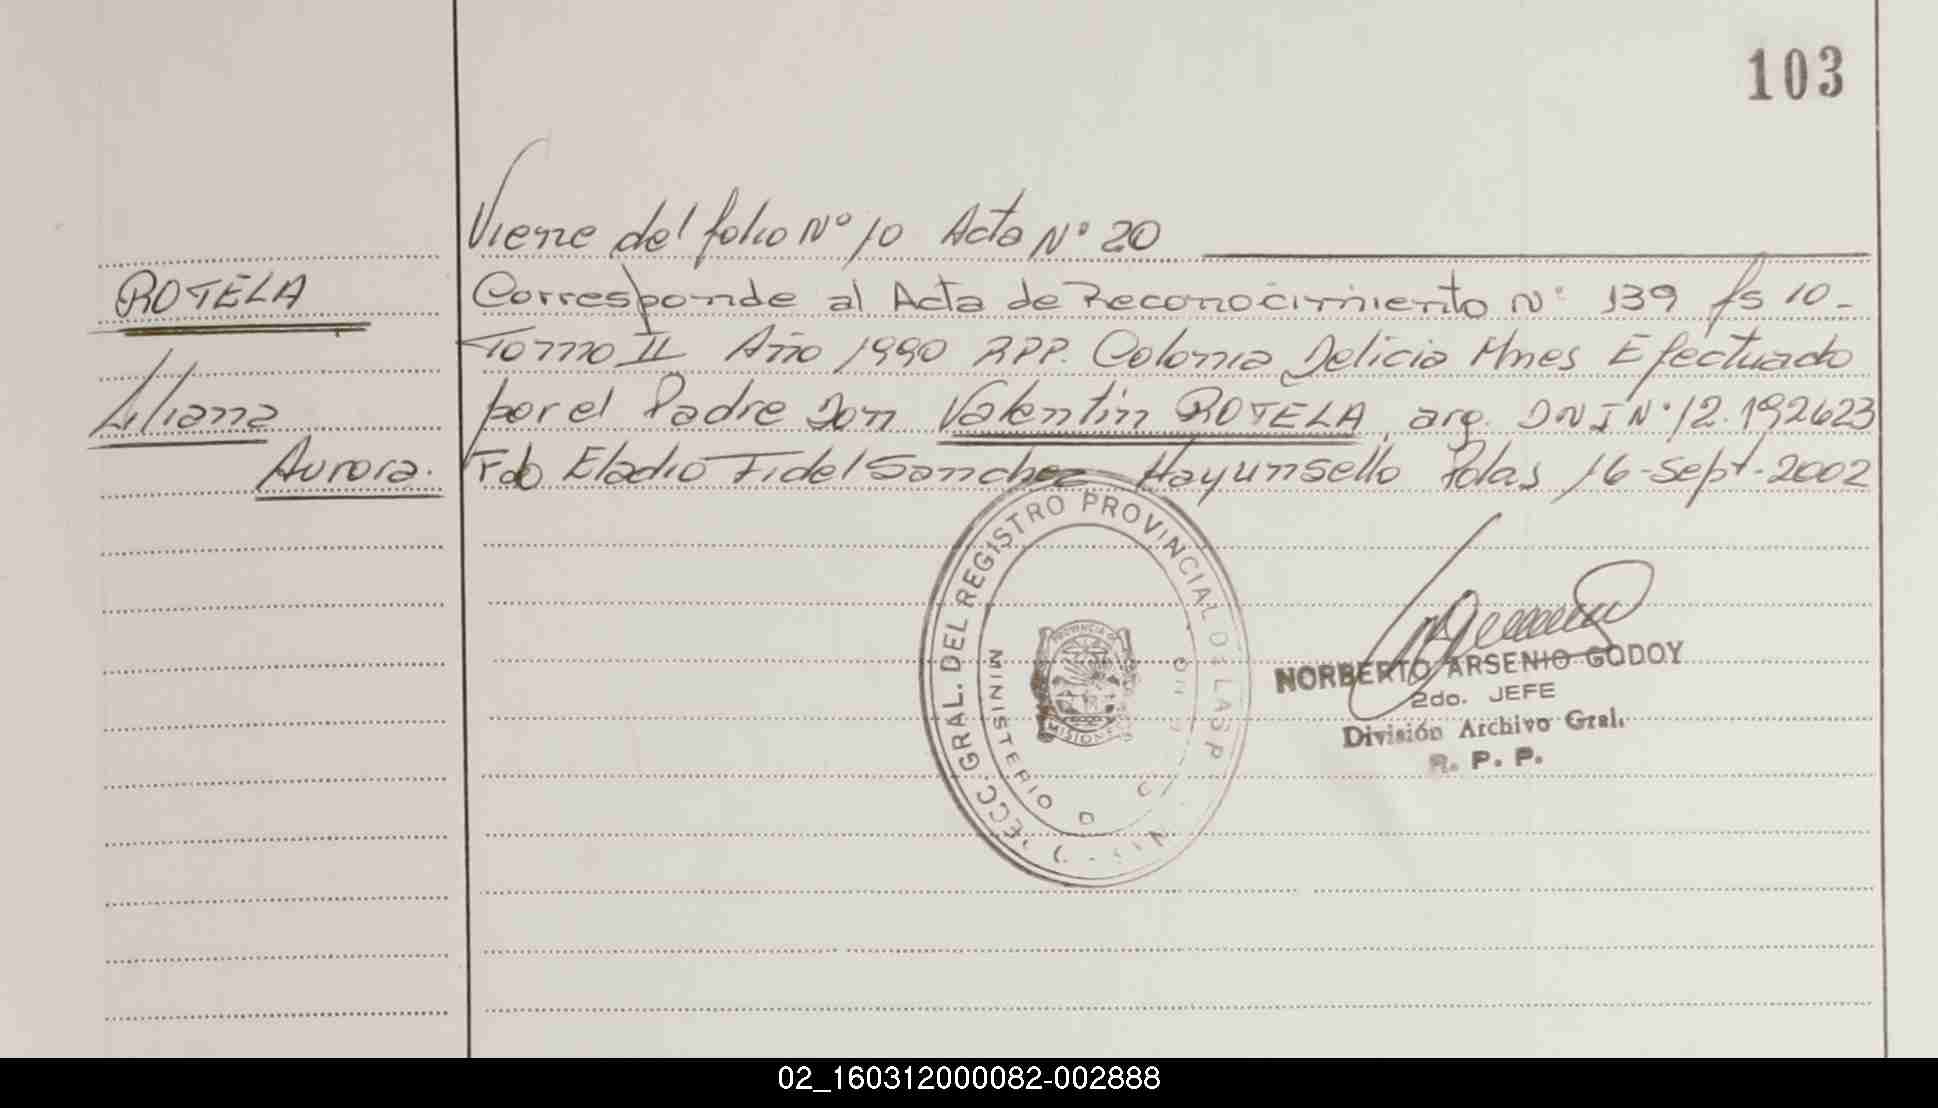 103
Viene del folio Nº 10 Acta Nº 20
ROTELA
Liliana
Aurora.
Corresponde al Acta de Reconocimiento Nº 139 fs 10-
Tomo II Año 1990 RPP. Colonia Delicia Mnes Efectuado
por el Padre Don Valentin ROTELA, arg. DNI Nº 12.192623
Fdo Eladio Fidel Sanchez Hay un sello Pdas 16-Sept-2002
ECC. GRAL. DEL REGISTRO PROVINCIAL DE LAS P
MINISTERIO D
PROVINCIA DE
MISIONES
NORBERTO ARSENIO GODOY
2do. JEFE
División Archivo Gral.
R. P. P.
02_160312000082-002888